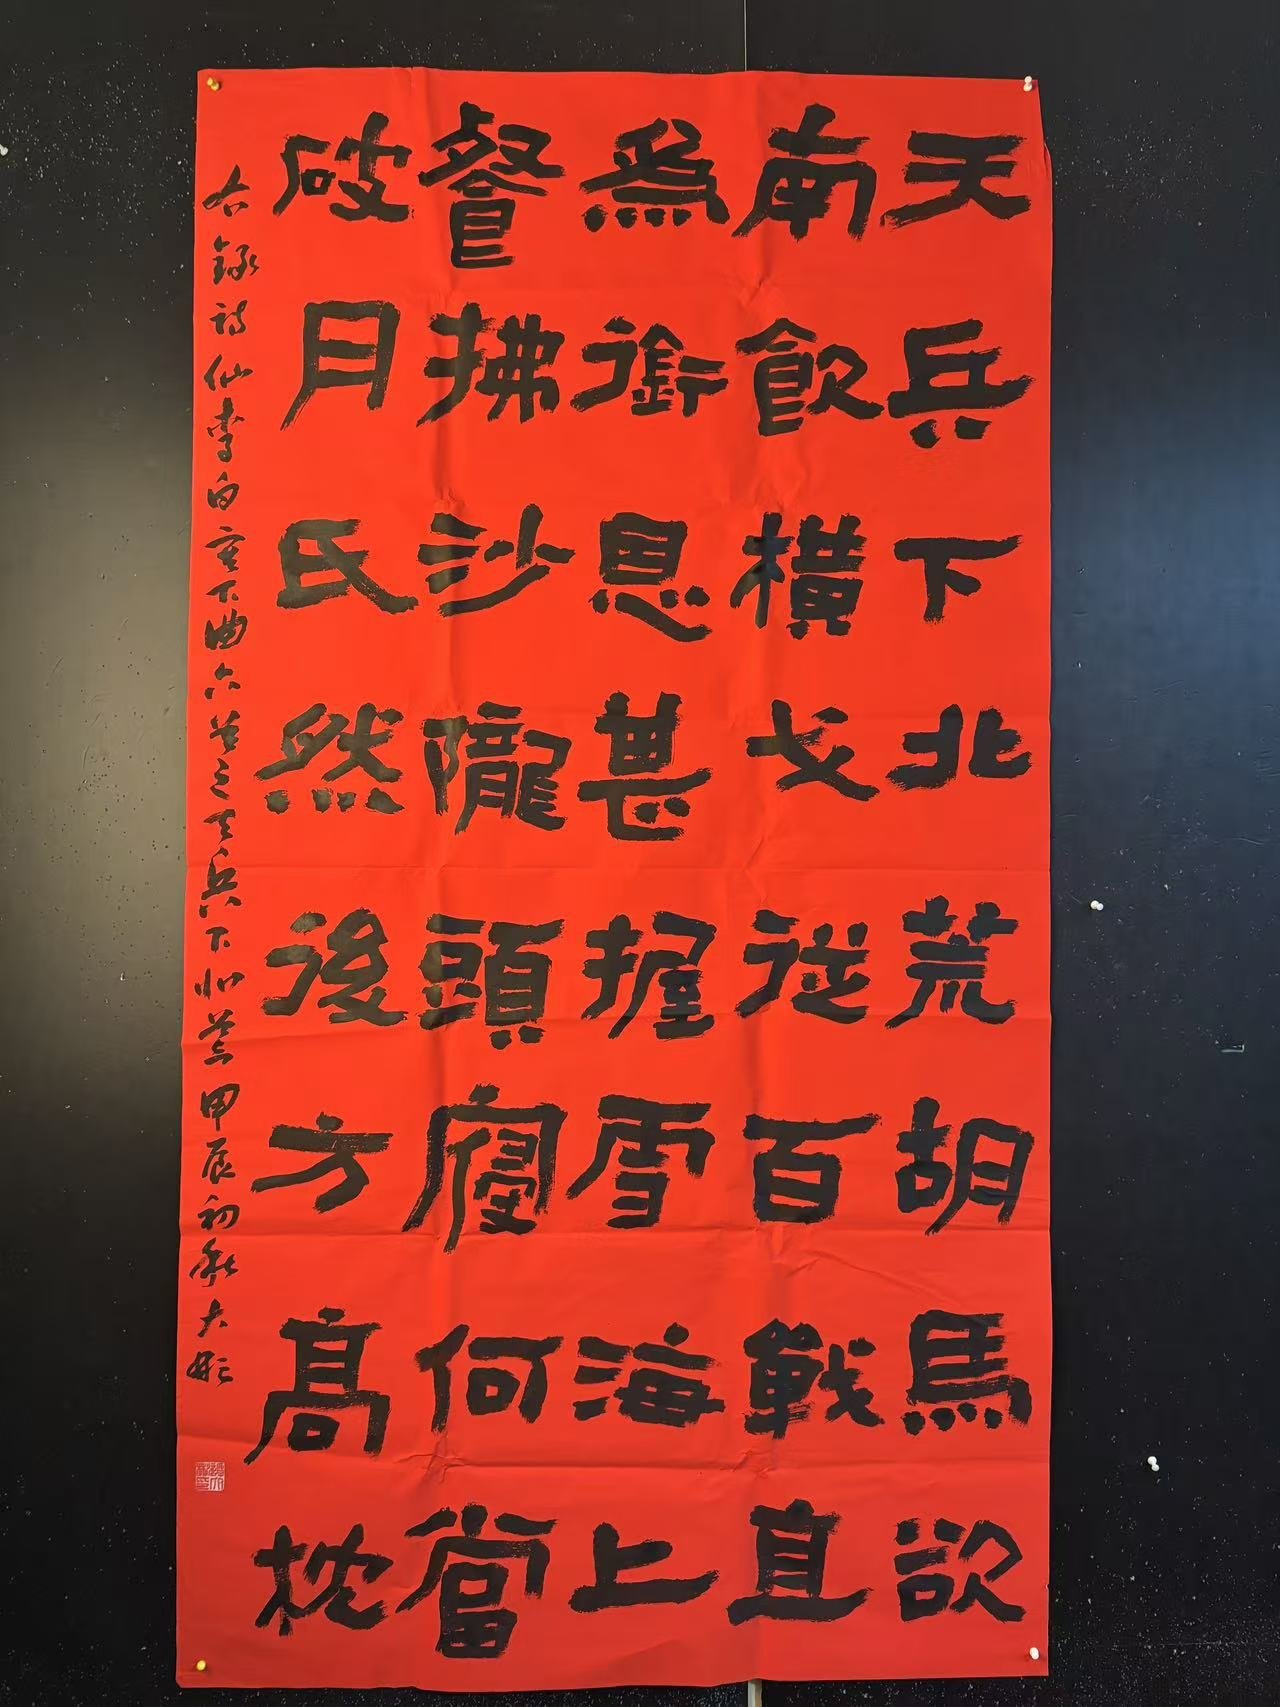 天兵下北荒胡馬欲
南飲橫戈從百戰直
爲銜恩甚握雪海上
餐拂沙隴頭寢何當
破月氏然後方高枕
右錄詩仙李白塞下曲六首之天兵下北荒甲辰初秋大